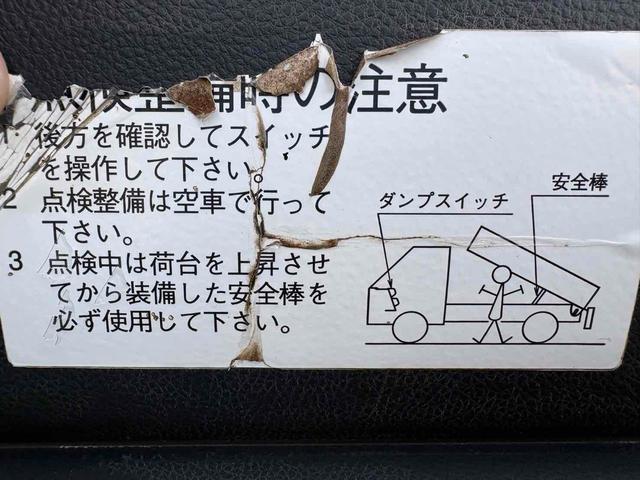 点検整備時の注意
1 後方を確認してスイッチ
を操作して下さい。
2 点検整備は空車で行って
下さい。
3 点検中は荷台を上昇させ
てから装備した安全棒を
必ず使用して下さい。
ダンプスイッチ
安全棒